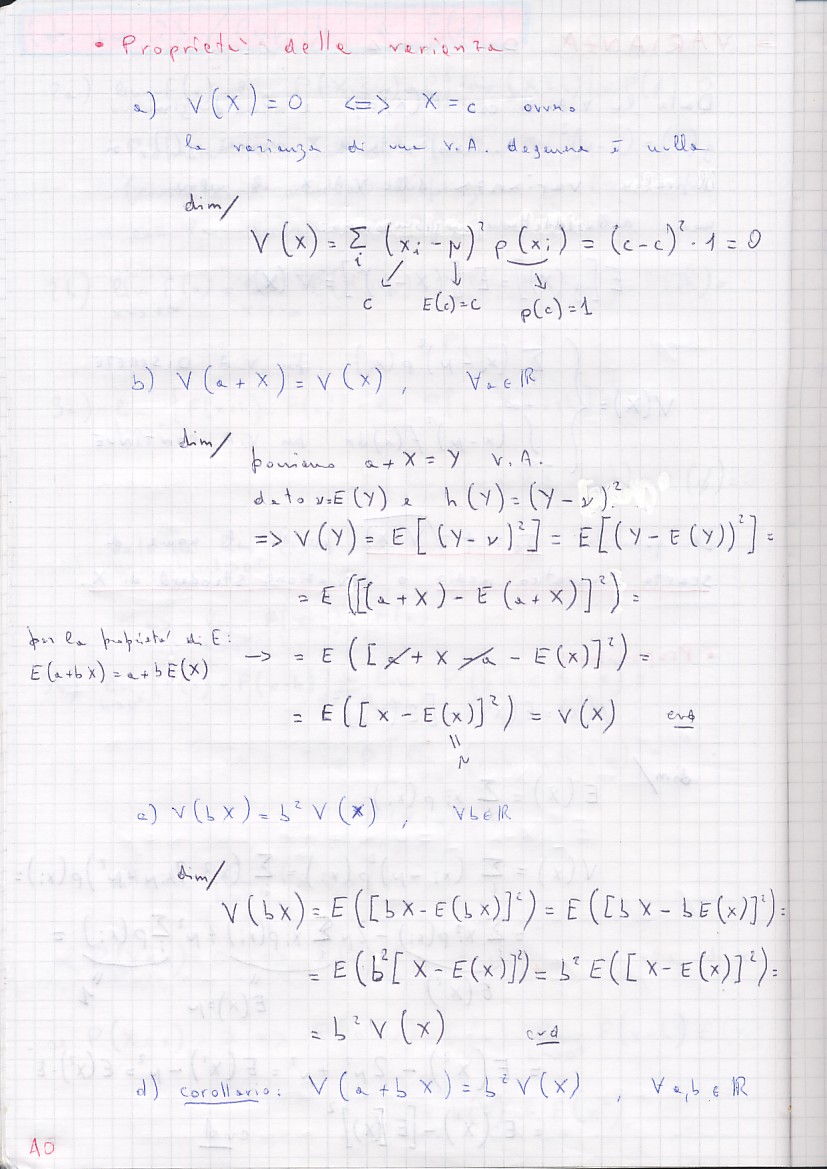 • Proprietà della varianza
a) V(X) = 0 <=> X = c ovvero
la varianza di una v.A. degenere è nulla
dim/
V(x) = Σ_i (x_i - μ)² p(x_i) = (c-c)² · 1 = 0
c E(c)=c p(c)=1
b) V(a + X) = V(X) , ∀a ∈ ℝ
dim/
poniamo a + X = Y v.A.
dato ν=E(Y) e h(Y) = (Y - ν)²
=> V(Y) = E[(Y-ν)²] = E[(Y - E(Y))²] =
= E([(a + X) - E(a + X)]²) =
per la proprietà di E:
E(a+bX) = a+bE(X) -> = E([a + X - a - E(X)]²) =
= E([X - E(X)]²) = V(X) cvd
||
μ
c) V(bX) = b² V(X) , ∀b∈ℝ
dim/
V(bX) = E([bX - E(bX)]²) = E([bX - bE(X)]²) =
= E(b²[X - E(X)]²) = b² E([X - E(X)]²) =
= b² V(X) cvd
d) corollario: V(a + bX) = b² V(X) , ∀a,b ∈ ℝ
A0